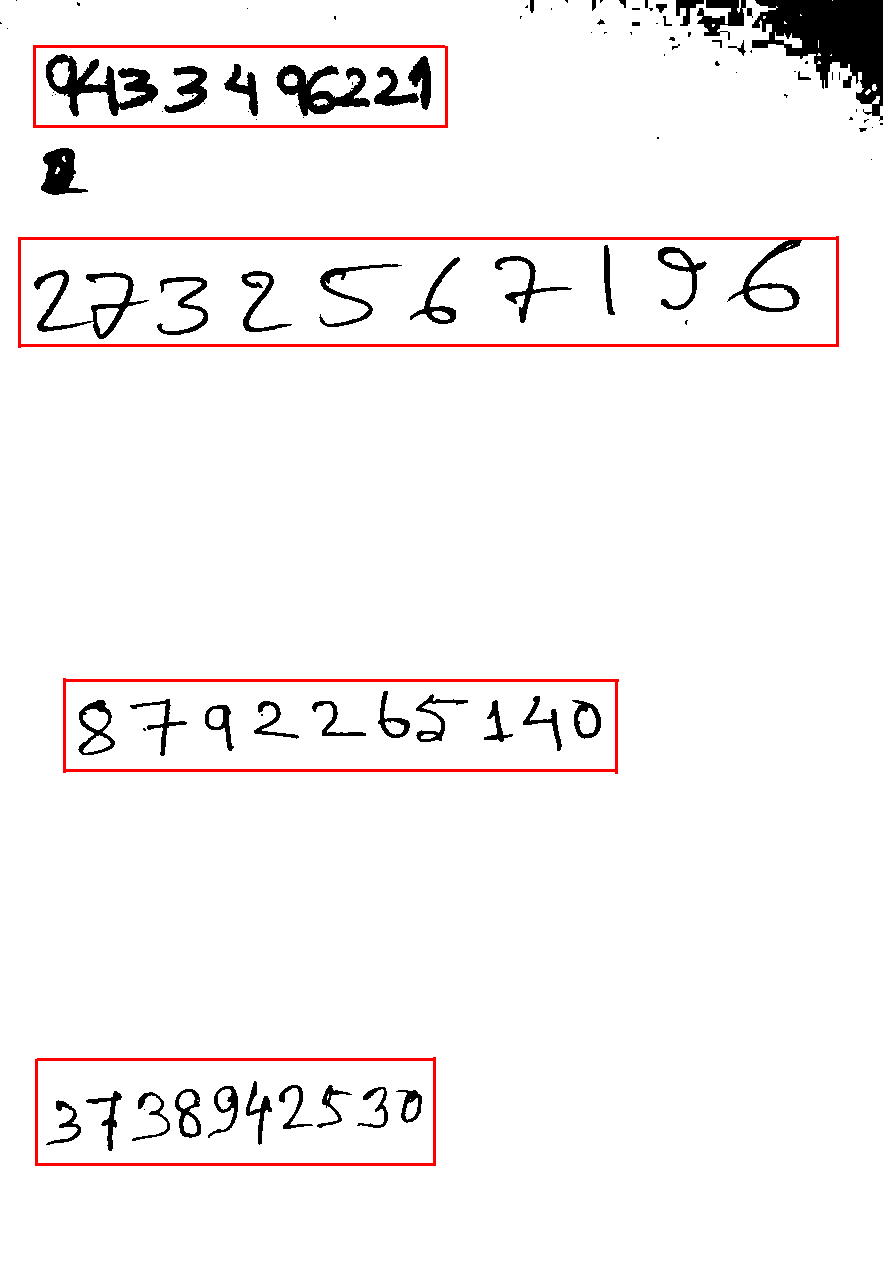 9433496221
2732567196
8792265140
3738942530